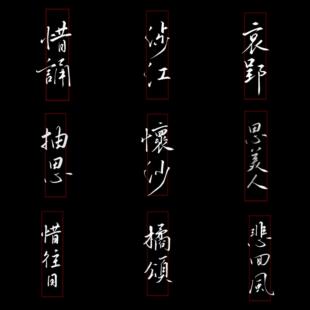 惜誦
涉江
哀郢
抽思
懷沙
思美人
惜往日
橘頌
悲回風